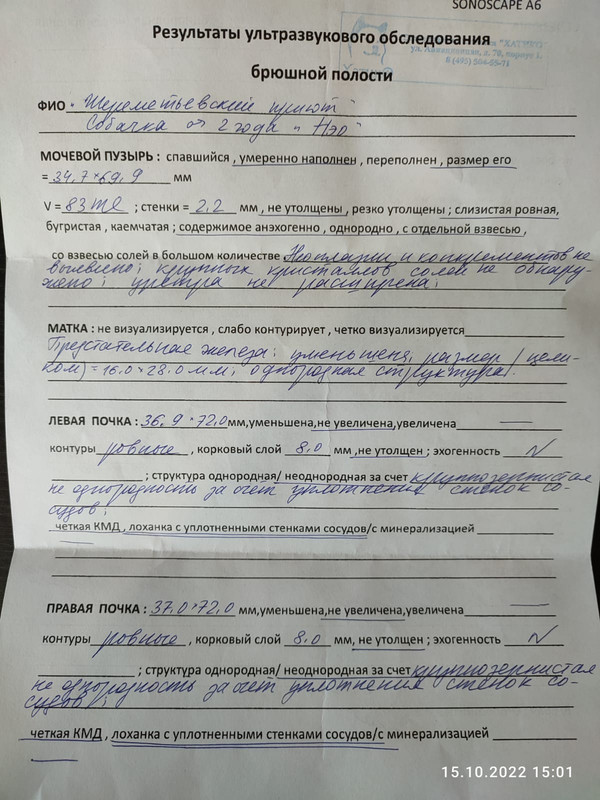 SONOSCAPE A6
Результаты ультразвукового обследования
брюшной полости
"ХАТИКО"
8 (495) 504-55-71
ФИО " Шереметьевский приют "
Собачка от 2 года " Нэо "
МОЧЕВОЙ ПУЗЫРЬ : спавшийся , умеренно наполнен , переполнен , размер его
= 34,7 × 69,9 мм
V = 83 ml ; стенки = 2.2 мм , не утолщены , резко утолщены ; слизистая ровная,
бугристая , каемчатая ; содержимое анэхогенно , однородно , с отдельной взвесью ,
со взвесью солей в большом количестве Неоплазии и конкрементов не
выявлено; крупных кристаллов солей не обнару-
жено; уретра не расширена;
МАТКА : не визуализируется , слабо контурирует , четко визуализируется
Предстательная железа: уменьшена, размер (цели-
ком) = 16.0 × 28.0 мм; однородная структура.
ЛЕВАЯ ПОЧКА : 36.9 × 72,0 мм,уменьшена,не увеличена,увеличена
контуры ровные , корковый слой 8,0 мм ,не утолщен ; эхогенность N
; структура однородная/ неоднородная за счет крупнозернистая
не однородность за счет уплотнения стенок со-
судов;
четкая КМД , лоханка с уплотненными стенками сосудов/с минерализацией
ПРАВАЯ ПОЧКА : 37.0 × 72.0 мм,уменьшена,не увеличена,увеличена
контуры ровные , корковый слой 8,0 мм, не утолщен ; эхогенность N
; структура однородная/ неоднородная за счет крупнозернистая
не однородность за счет уплотнения стенок со-
судов;
четкая КМД , лоханка с уплотненными стенками сосудов/с минерализацией
15.10.2022 15:01